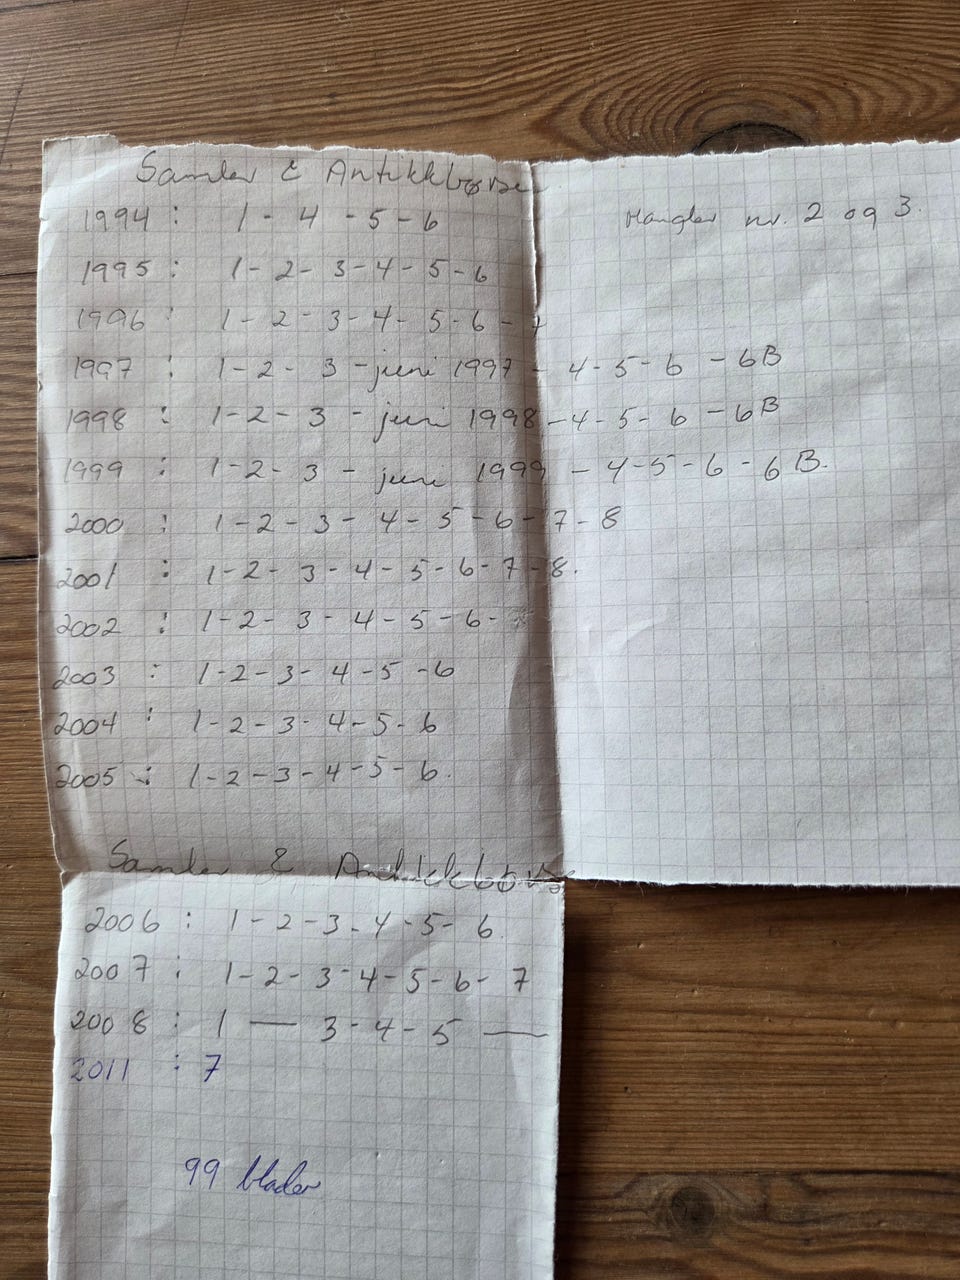 Samler & Antikkbørse
1994 : 1 - 4 - 5 - 6 Mangler nr. 2 og 3.
1995 : 1 - 2 - 3 - 4 - 5 - 6
1996 : 1 - 2 - 3 - 4 - 5 - 6 - 7
1997 : 1 - 2 - 3 - juni 1997 - 4 - 5 - 6 - 6B
1998 : 1 - 2 - 3 - juni 1998 - 4 - 5 - 6 - 6B
1999 : 1 - 2 - 3 - juni 1999 - 4 - 5 - 6 - 6B.
2000 : 1 - 2 - 3 - 4 - 5 - 6 - 7 - 8
2001 : 1 - 2 - 3 - 4 - 5 - 6 - 7 - 8.
2002 : 1 - 2 - 3 - 4 - 5 - 6 -
2003 : 1 - 2 - 3 - 4 - 5 - 6
2004 : 1 - 2 - 3 - 4 - 5 - 6
2005 : 1 - 2 - 3 - 4 - 5 - 6.
Samler & Antikkbørs
2006 : 1 - 2 - 3 - 4 - 5 - 6.
2007 : 1 - 2 - 3 - 4 - 5 - 6 - 7
2008 : 1 — 3 - 4 - 5 —
2011 : 7
99 blader